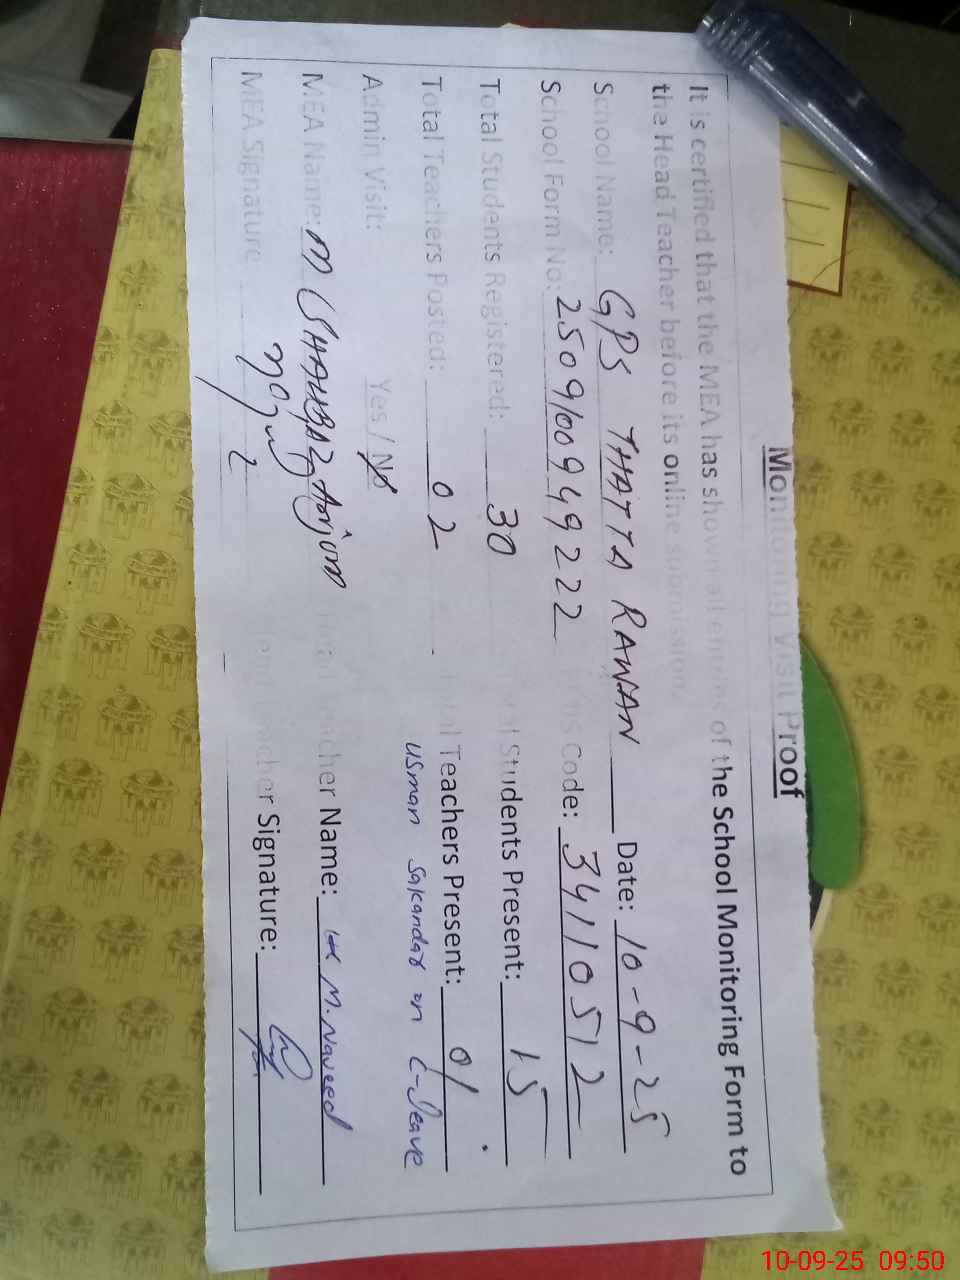 Monitoring Visit Proof
It is certified that the MEA has shown all entries of the School Monitoring Form to
the Head Teacher before its online submission.
School Name: GPS THATTA RAWAN Date: 10-9-25
School Form No: 2509100949222 Code: 34110512
Total Students Registered: 30 Students Present: 15
Total Teachers Posted: 02 Total Teachers Present: 01
Admin Visit: Yes / No usman sakandar on C-leave
MEA Name: M SHAHBAZ Anjum Head Teacher Name: M. Naveed
MEA Signature Head Teacher Signature:
10-09-25 09:50